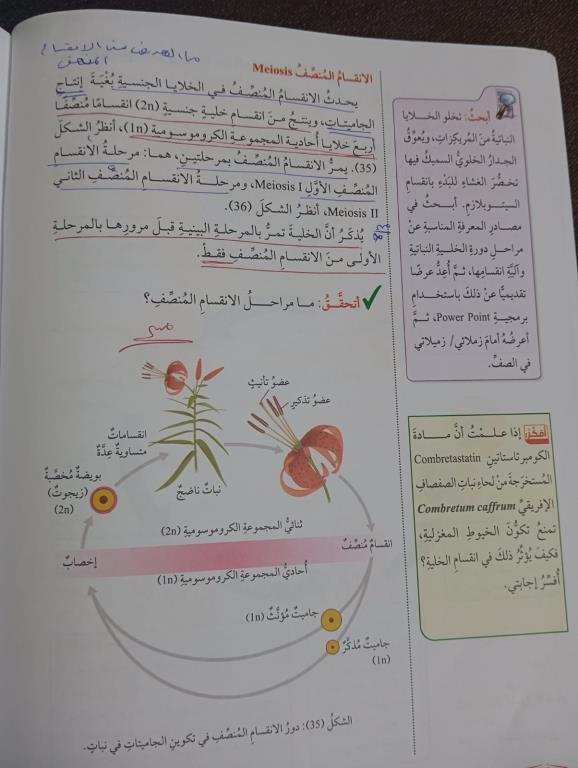 ما الهدف من الانقسام
المنصف
الانقسامُ المُنصِّفُ Meiosis
يحدثُ الانقسامُ المُنصِّفُ في الخلايا الجنسيةِ بُغْيَةَ إنتاجِ
الجاميتاتِ، وينتجُ منَ انقسامِ خليةٍ جنسيةٍ (2n) انقسامًا مُنصِّفًا
أربعُ خلايا أُحاديةِ المجموعةِ الكروموسوميةِ (1n)، أنظرُ الشكلَ
(35). يمرُّ الانقسامُ المُنصِّفُ بمرحلتينِ، هما: مرحلةُ الانقسامِ
المُنصِّفِ الأوَّلِ Meiosis I، ومرحلـــةُ الانقسـامِ المُنصِّـفِ الثاني
Meiosis II، أنظرُ الشكلَ (36).
يُذكَرُ أنَّ الخليةَ تمرُّ بالمرحلةِ البينيةِ قبلَ مرورِها بالمرحلةِ
الأولى منَ الانقسامِ المُنصِّفِ فقطْ.
أتحقَّقُ: ما مراحــلُ الانقسامِ المُنصِّفِ؟
أبحثُ: تخلو الخلايا
النباتيةُ منَ المُريكِزاتِ، ويُعوِّقُ
الجدارُ الخلويُّ السميكُ فيها
تخصُّرَ الغشاءِ للبَدْءِ بانقسامِ
السيتوبلازمِ. أبحـثُ في
مصادرِ المعرفةِ المناسبةِ عنْ
مراحلِ دورةِ الخليةِ النباتيةِ
وآليَّةِ انقسامِها، ثمَّ أُعِدُّ عرضًا
تقديميًّا عنْ ذلكَ باستخدامِ
برمجيةِ Power Point، ثمَّ
أعرضُهُ أمامَ زملائي/ زميلاتي
في الصفِّ.
أُفكِّرُ: إذا علمْتُ أنَّ مـادةَ
الكومبرتاستاتينِ Combretastatin
المُستخرَجةَ منْ لحاءِ نباتِ الصفصافِ
الإفريقيِّ Combretum caffrum
تمنعُ تكوُّنَ الخيوطِ المغزليةِ،
فكيفَ يُؤثِّرُ ذلكَ في انقسامِ الخليةِ؟
أُفسِّرُ إجابتي.
عضوُ تأنيثٍ
عضوُ تذكيرٍ
انقساماتٌ
متساويةٌ عِدَّةٌ
نباتٌ ناضجٌ
بويضةٌ مُخصَّبةٌ
(زيجوتٌ)
(2n)
ثنائيُّ المجموعةِ الكروموسوميةِ (2n)
انقسامٌ مُنصِّفٌ
إخصابٌ
أُحاديُّ المجموعةِ الكروموسوميةِ (1n)
جاميتٌ مُؤنَّثٌ (1n)
جاميتٌ مُذكَّرٌ
(1n)
الشكلُ (35): دورُ الانقسامِ المُنصِّفِ في تكوينِ الجاميتاتِ في نباتٍ.